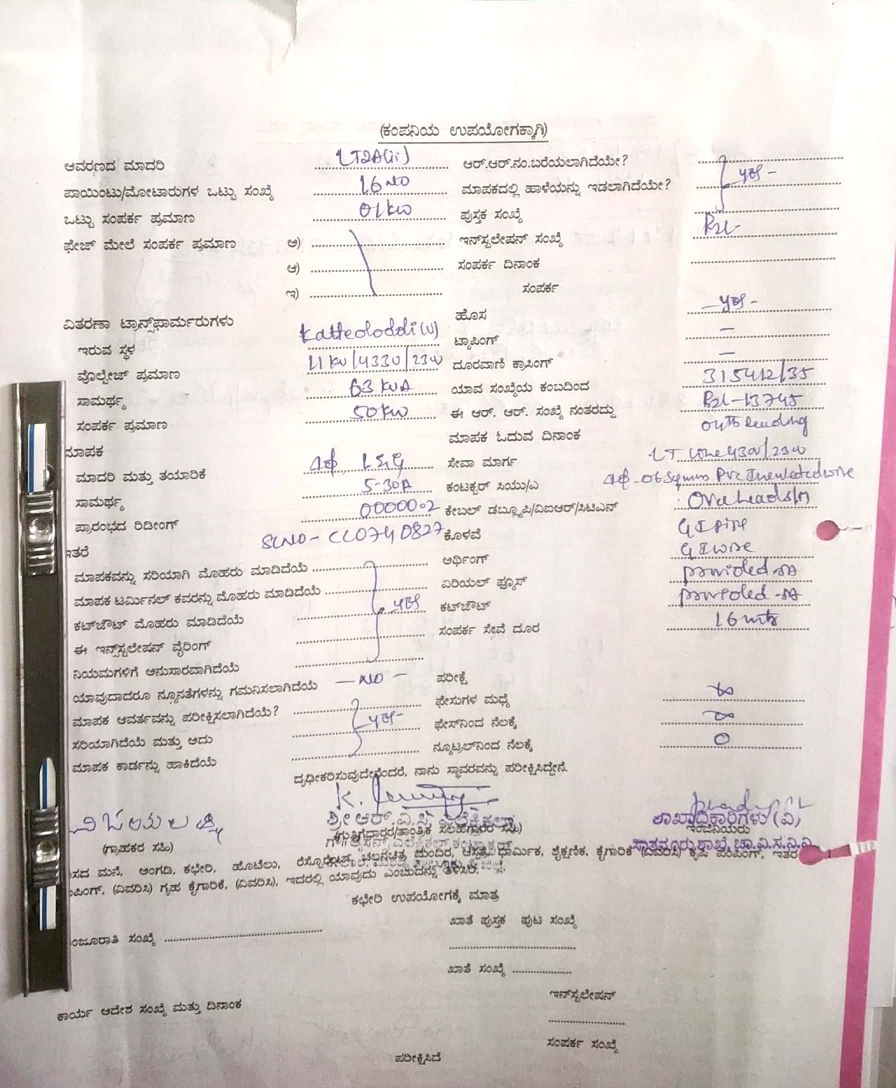 (ಕಂಪನಿಯ ಉಪಯೋಗಕ್ಕಾಗಿ)
ಆವರಣದ ಮಾದರಿ LT2A(ii) ಆರ್.ಆರ್.ನಂ.ಬರೆಯಲಾಗಿದೆಯೇ?
ಪಾಯಿಂಟು/ಮೋಟಾರುಗಳ ಒಟ್ಟು ಸಂಖ್ಯೆ 16 NO ಮಾಪಕದಲ್ಲಿ ಹಾಳೆಯನ್ನು ಇಡಲಾಗಿದೆಯೇ? yes -
ಒಟ್ಟು ಸಂಪರ್ಕ ಪ್ರಮಾಣ 01KW ಪುಸ್ತಕ ಸಂಖ್ಯೆ
ಫೇಜ್ ಮೇಲೆ ಸಂಪರ್ಕ ಪ್ರಮಾಣ ಅ) ಇನ್‌ಸ್ಟಲೇಷನ್ ಸಂಖ್ಯೆ
ಆ) ಸಂಪರ್ಕ ದಿನಾಂಕ
ಇ) ಸಂಪರ್ಕ
ವಿತರಣಾ ಟ್ರಾನ್ಸ್‌ಫಾರ್ಮರುಗಳು ಹೊಸ - yes -
ಇರುವ ಸ್ಥಳ ಟ್ಯಾಪಿಂಗ್ -
ವೊಲ್ಟೇಜ್ ಪ್ರಮಾಣ 11 KV/433V/23W ದೂರವಾಣಿ ಕ್ರಾಸಿಂಗ್ -
ಸಾಮರ್ಥ್ಯ 63 KVA ಯಾವ ಸಂಖ್ಯೆಯ ಕಂಬದಿಂದ
ಸಂಪರ್ಕ ಪ್ರಮಾಣ 50 KW ಈ ಆರ್. ಆರ್. ಸಂಖ್ಯೆ ನಂತರದ್ದು
ಮಾಪಕ ಓದುವ ದಿನಾಂಕ reading
ಮಾಪಕ
ಮಾದರಿ ಮತ್ತು ತಯಾರಿಕೆ L&G ಸೇವಾ ಮಾರ್ಗ
ಸಾಮರ್ಥ್ಯ 5-30A ಕಂಟಕ್ಟರ್ ಸಿಯು/ಎ
ಪ್ರಾರಂಭದ ರಿಡೀಂಗ್ 000000.2 ಕೇಬಲ್ ಡಬ್ಲ್ಯೂಪಿ/ವಿಐಆರ್/ಸಿಟಿಎನ್
SLNO - CC0740827 ಕೊಳವೆ GI pipe
ಇತರೆ
ಮಾಪಕವನ್ನು ಸರಿಯಾಗಿ ಮೊಹರು ಮಾಡಿದೆಯೆ ಅರ್ಥಿಂಗ್ GI wire
ಮಾಪಕ ಟರ್ಮಿನಲ್ ಕವರನ್ನು ಮೊಹರು ಮಾಡಿದೆಯೆ ಏರಿಯಲ್ ಫ್ಯೂಸ್ provided -5A
ಕಟ್‌ಔಟ್ ಮೊಹರು ಮಾಡಿದೆಯೆ yes ಕಟ್‌ಔಟ್ provided -5A
ಈ ಇನ್‌ಸ್ಟಲೇಷನ್ ವೈರಿಂಗ್ ಸಂಪರ್ಕ ಸೇವೆ ದೂರ 16 mts
ನಿಯಮಗಳಿಗೆ ಅನುಸಾರವಾಗಿದೆಯೆ
ಯಾವುದಾದರೂ ನ್ಯೂನತೆಗಳನ್ನು ಗಮನಿಸಲಾಗಿದೆಯೆ - NO - ಪರೀಕ್ಷೆ
ಮಾಪಕ ಆವರ್ತವನ್ನು ಪರೀಕ್ಷಿಸಲಾಗಿದೆಯೆ? ಫೇಸುಗಳ ಮಧ್ಯೆ ∞
ಸರಿಯಾಗಿದೆಯೆ ಮತ್ತು ಅದು yes - ಫೇಸ್‌ನಿಂದ ನೆಲಕ್ಕೆ ∞
ಮಾಪಕ ಕಾರ್ಡನ್ನು ಹಾಕಿದೆಯೆ ನ್ಯೂಟ್ರಲ್‌ನಿಂದ ನೆಲಕ್ಕೆ 0
ದೃಢೀಕರಿಸುವುದೇನೆಂದರೆ, ನಾನು ಸ್ಥಾವರವನ್ನು ಪರೀಕ್ಷಿಸಿದ್ದೇನೆ.
ವಿಜಯಲಕ್ಷ್ಮಿ ಶ್ರೀ ಆರ್.ವಿ.ಸಿ. ಶಾಖಾಧಿಕಾರಿಗಳು (ವಿ)
(ಗ್ರಾಹಕರ ಸಹಿ) (ಗುತ್ತಿಗೆದಾರರ/ತಾಂತ್ರಿಕ ಸಲಹೆಗಾರರ ಸಹಿ) ಇಂಜಿನಿಯರು
ಸಾತನೂರು ಶಾಖೆ, ಚಾ.ವಿ.ಸ.ನಿ.ನಿ
ಮನೆ, ಅಂಗಡಿ, ಕಛೇರಿ, ಹೊಟೆಲು, ಚಲನಚಿತ್ರ ಮಂದಿರ, ಆಸ್ಪತ್ರೆ, ಧಾರ್ಮಿಕ, ಶೈಕ್ಷಣಿಕ, ಕೈಗಾರಿಕೆ (ವಿವರಿಸಿ) ಕೃಷಿ ಪಂಪಿಂಗ್, ಇತರ
ಪಂಪಿಂಗ್, (ವಿವರಿಸಿ) ಗೃಹ ಕೈಗಾರಿಕೆ, (ವಿವರಿಸಿ), ಇದರಲ್ಲಿ ಯಾವುದು ಎಂಬುದನ್ನು ತಿಳಿಸಿರಿ.
ಕಛೇರಿ ಉಪಯೋಗಕ್ಕೆ ಮಾತ್ರ
ಖಾತೆ ಪುಸ್ತಕ ಪುಟ ಸಂಖ್ಯೆ
ಮಂಜೂರಾತಿ ಸಂಖ್ಯೆ
ಖಾತೆ ಸಂಖ್ಯೆ
ಇನ್‌ಸ್ಟಲೇಷನ್
ಕಾರ್ಯ ಆದೇಶ ಸಂಖ್ಯೆ ಮತ್ತು ದಿನಾಂಕ
ಸಂಪರ್ಕ ಸಂಖ್ಯೆ
ಪರೀಕ್ಷಿಸಿದೆ